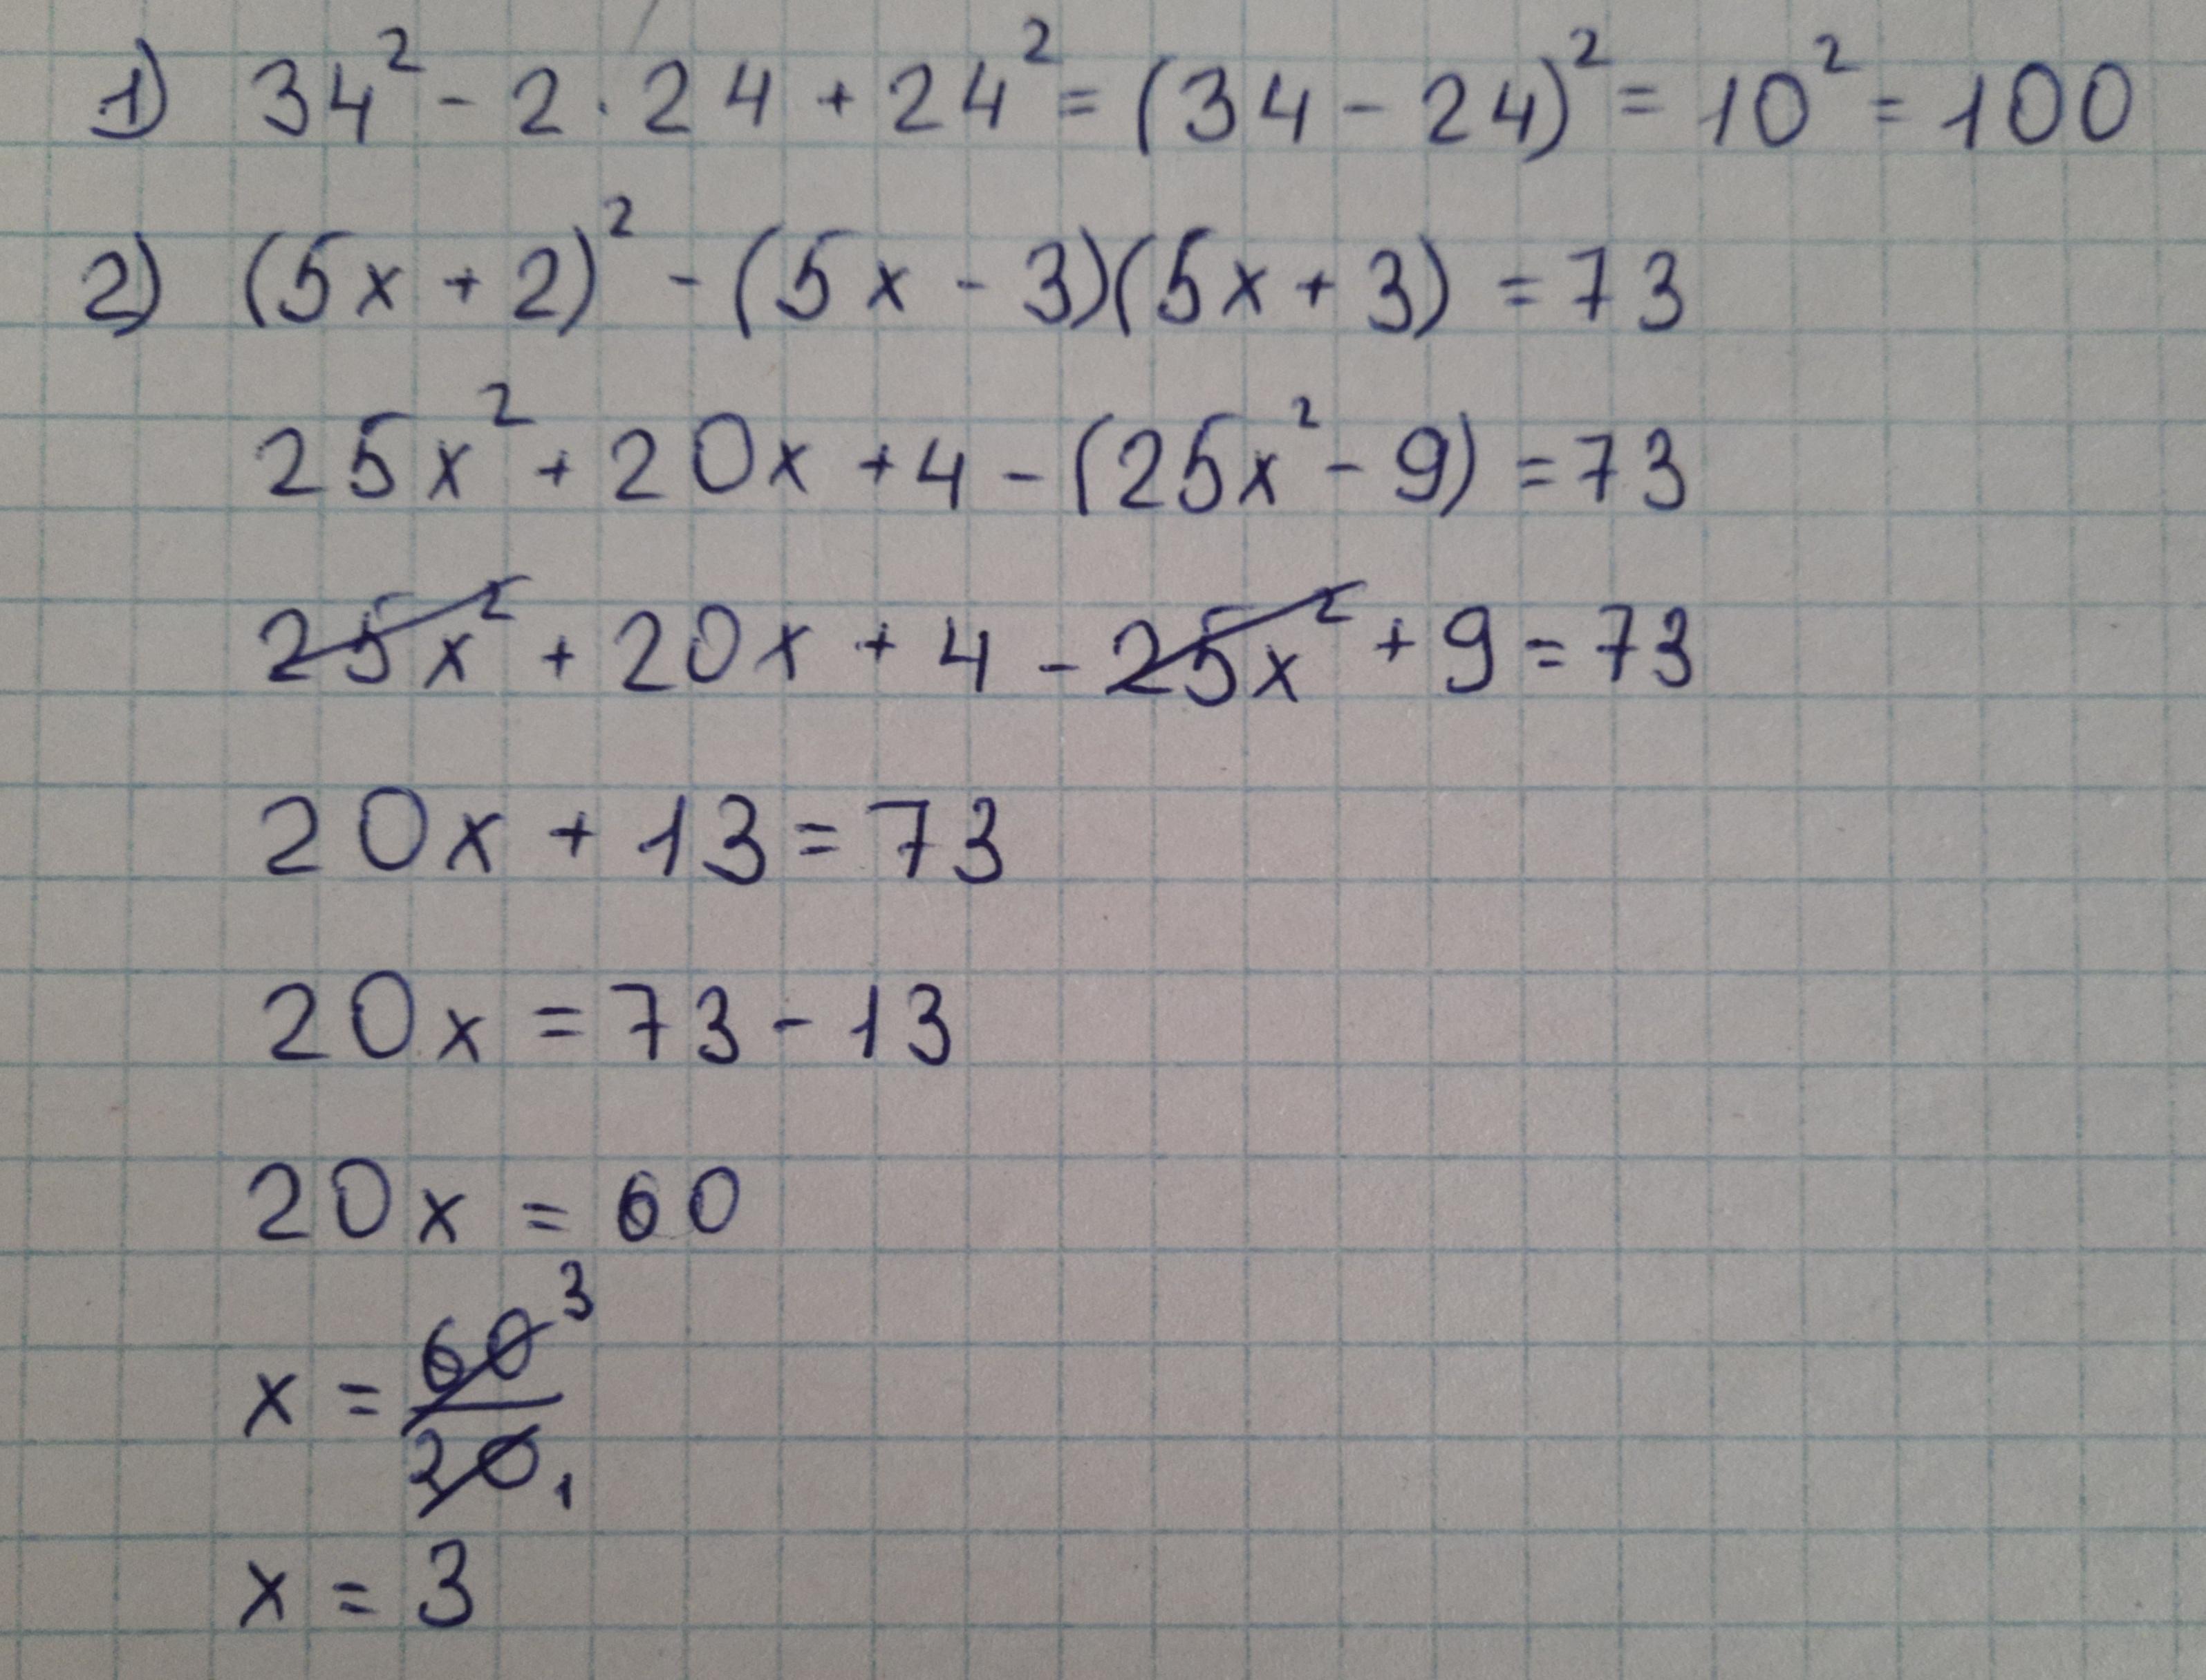 1) 34² - 2 · 24 + 24² = (34 - 24)² = 10² = 100
2) (5x + 2)² - (5x - 3)(5x + 3) = 73
25x² + 20x + 4 - (25x² - 9) = 73
25x² + 20x + 4 - 25x² + 9 = 73
20x + 13 = 73
20x = 73 - 13
20x = 60
x = 60/20 3 1
x = 3